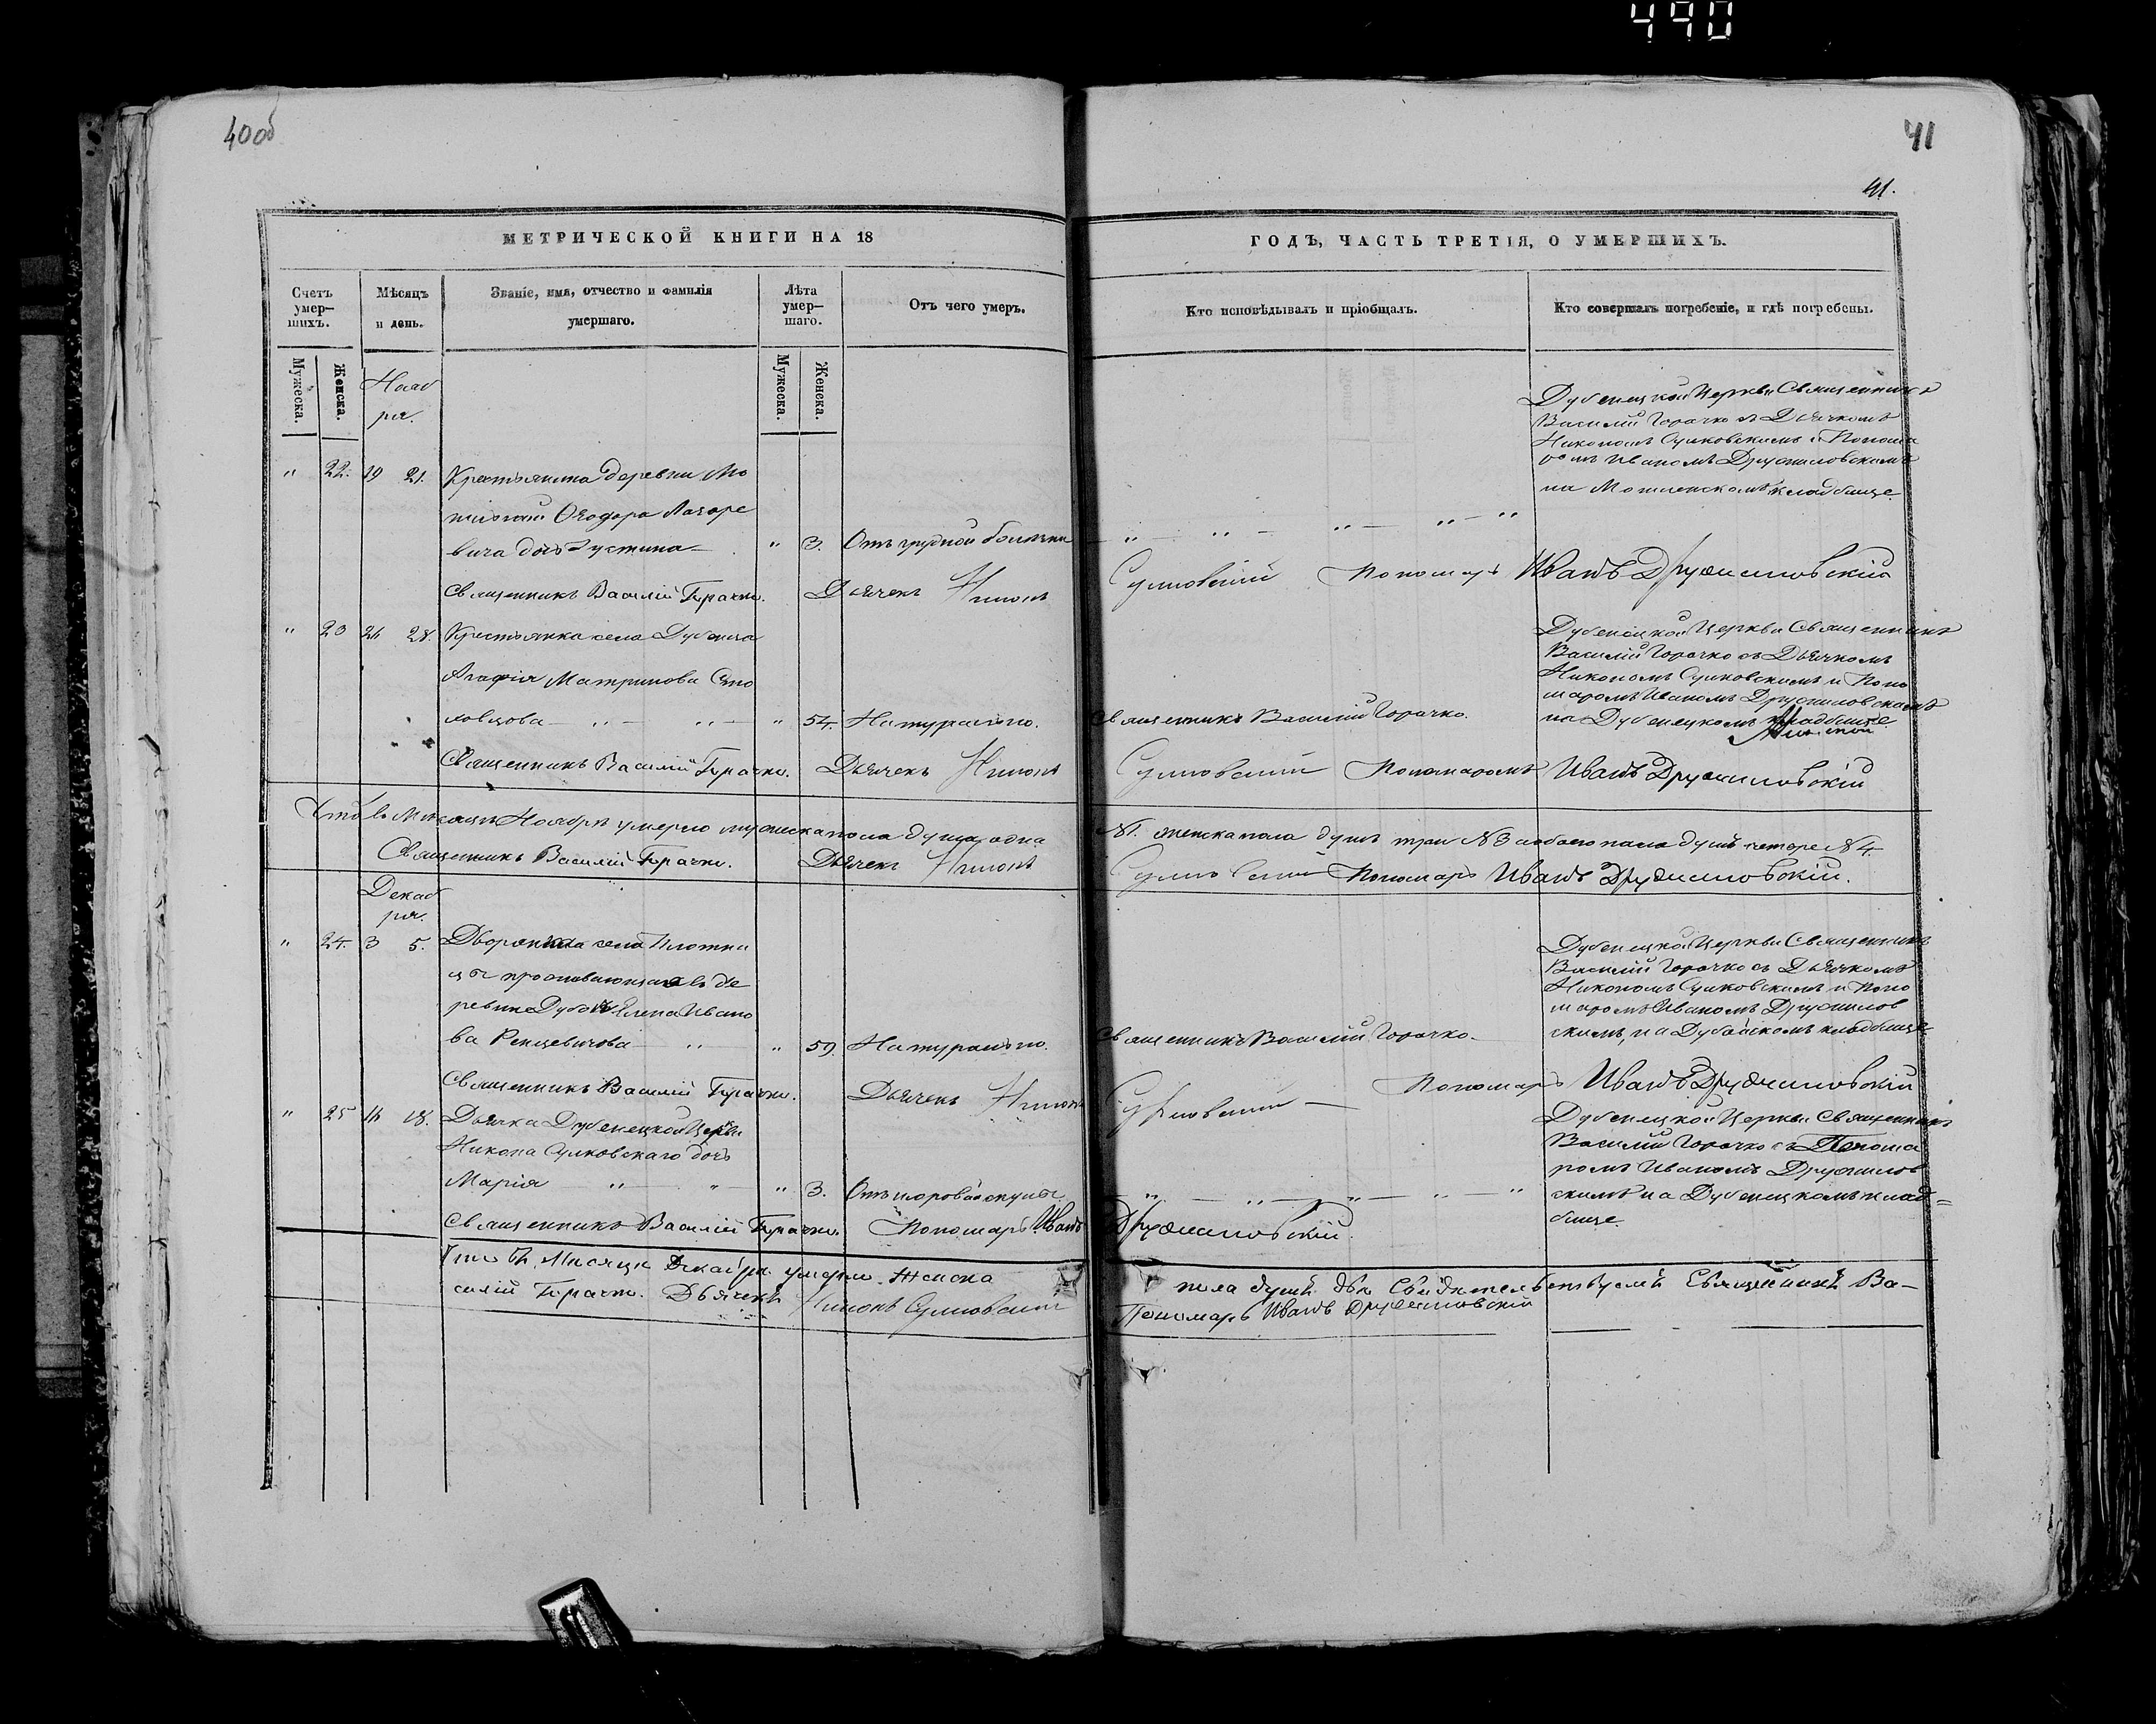 490
40об
41
41.
МЕТРИЧЕСКОЙ КНИГИ НА 18
ГОДЪ, ЧАСТЬ ТРЕТІЯ, О УМЕРШИХЪ.
Счетъ умер—шихъ.
Мѣсяцъ и день.
Званіе, имя, отчество и фамилія умершаго.
Лѣта умер—шаго.
Отъ чего умеръ.
Кто исповѣдывалъ и пріобщалъ.
Кто совершалъ погребеніе, и гдѣ погребены.
Мужеска.
Женска.
Мужеска.
Женска.
Нояб
ря.
" 22. 19 21. Крестьянина деревни
Ѳеодора Лазаре
вича дочь Густина " 3. Отъ грудной болезни
Дубенецкой Церкви Священникъ
Василій Горачко съ Дьячкомъ
Никономъ Сулковскимъ и Понома
ромъ Иваномъ Дружиловскимъ
на кладбище
Священникъ Василій Горачко. Дьячекъ Никонъ Сулковскій Пономарь Иванъ Дружиловскій
" 23 26 28. Крестьянка села Дубенца
Агафія
54. Натурально. Священникъ Василій Горачко.
Дубенецкой Церкви Священникъ
Василій Горачко съ Дьячкомъ
Никономъ Сулковскимъ и Поно
маромъ Иваномъ Дружиловскимъ
на Дубенецкомъ кладбище
Священникъ Василій Горачко. Дьячекъ Никонъ Сулковскій Пономаромъ Иванъ Дружиловскій
въ Месяцъ Ноябре умерло мужеска пола душа одна №1. женска пола душъ три №3 а обаего пола душъ четоре №4.
Священникъ Василій Горачко. Дьячекъ Никонъ Сулковскій Пономарь Иванъ Дружиловскій.
Декаб
ря.
" 24. 3 5. Дворянка села Плотни
цы проживающая въ де
ревне Елена Ивано
ва Ренцевичова " " 59. Натурально. Священникъ Василій Горачко.
Дубенецкой Церкви Священникъ
Василій Горачко съ Дьячкомъ
Никономъ Сулковскимъ и Поно
маромъ Иваномъ Дружилов
скимъ, на кладбище
Священникъ Василій Горачко. Дьячекъ Никонъ Сулковскій Пономарь Иванъ Дружиловскій
" 25 16 18. Дьячка Дубенецкой Церкви
Никона Сулковскаго дочь
Марія " " " 3. Отъ
Дубенецкой Церкви Священникъ
Василій Горачко съ Понома
ромъ Иваномъ Дружилов
скимъ на Дубенецкомъ клад=
бище.
Священникъ Василій Горачко. Пономарь Иванъ Дружиловскій.
Что въ Месяце Декабре умерло Женска пола душъ две Свидетельствуемъ Священникъ Ва-
силій Горачко. Дьячекъ Никонъ Сулковскій Пономарь Иванъ Дружиловскій